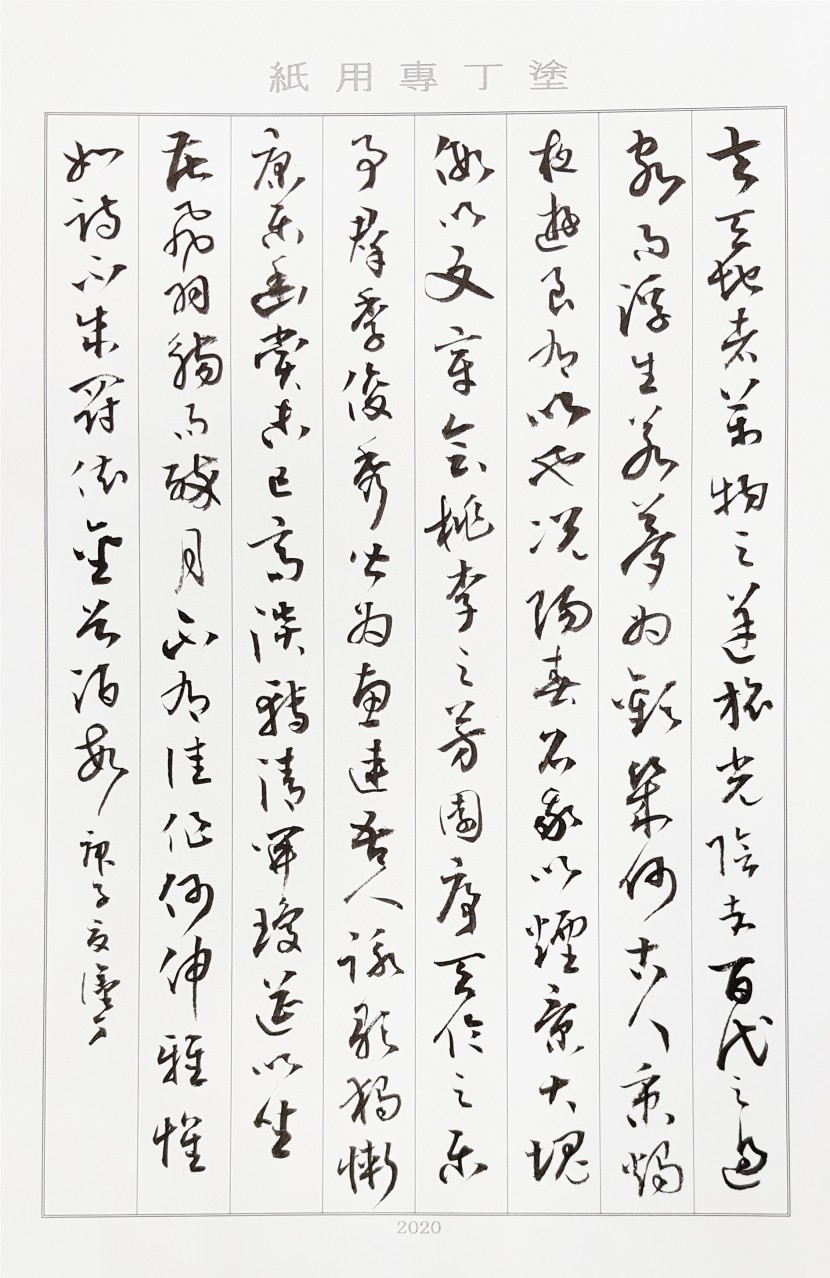 塗丁專用紙
夫天地者萬物之逆旅光陰者百代之過
客而浮生若夢為歡幾何古人秉燭
夜遊良有以也況陽春召我以煙景大塊
假以文章會桃李之芳園序天倫之樂
事群季俊秀皆為惠連吾人詠歌獨慚
康樂幽賞未已高談轉清開瓊筵以坐
花飛羽觴而醉月不有佳作何伸雅懷
如詩不成罰依金谷酒數 庚子夏塗丁
2020